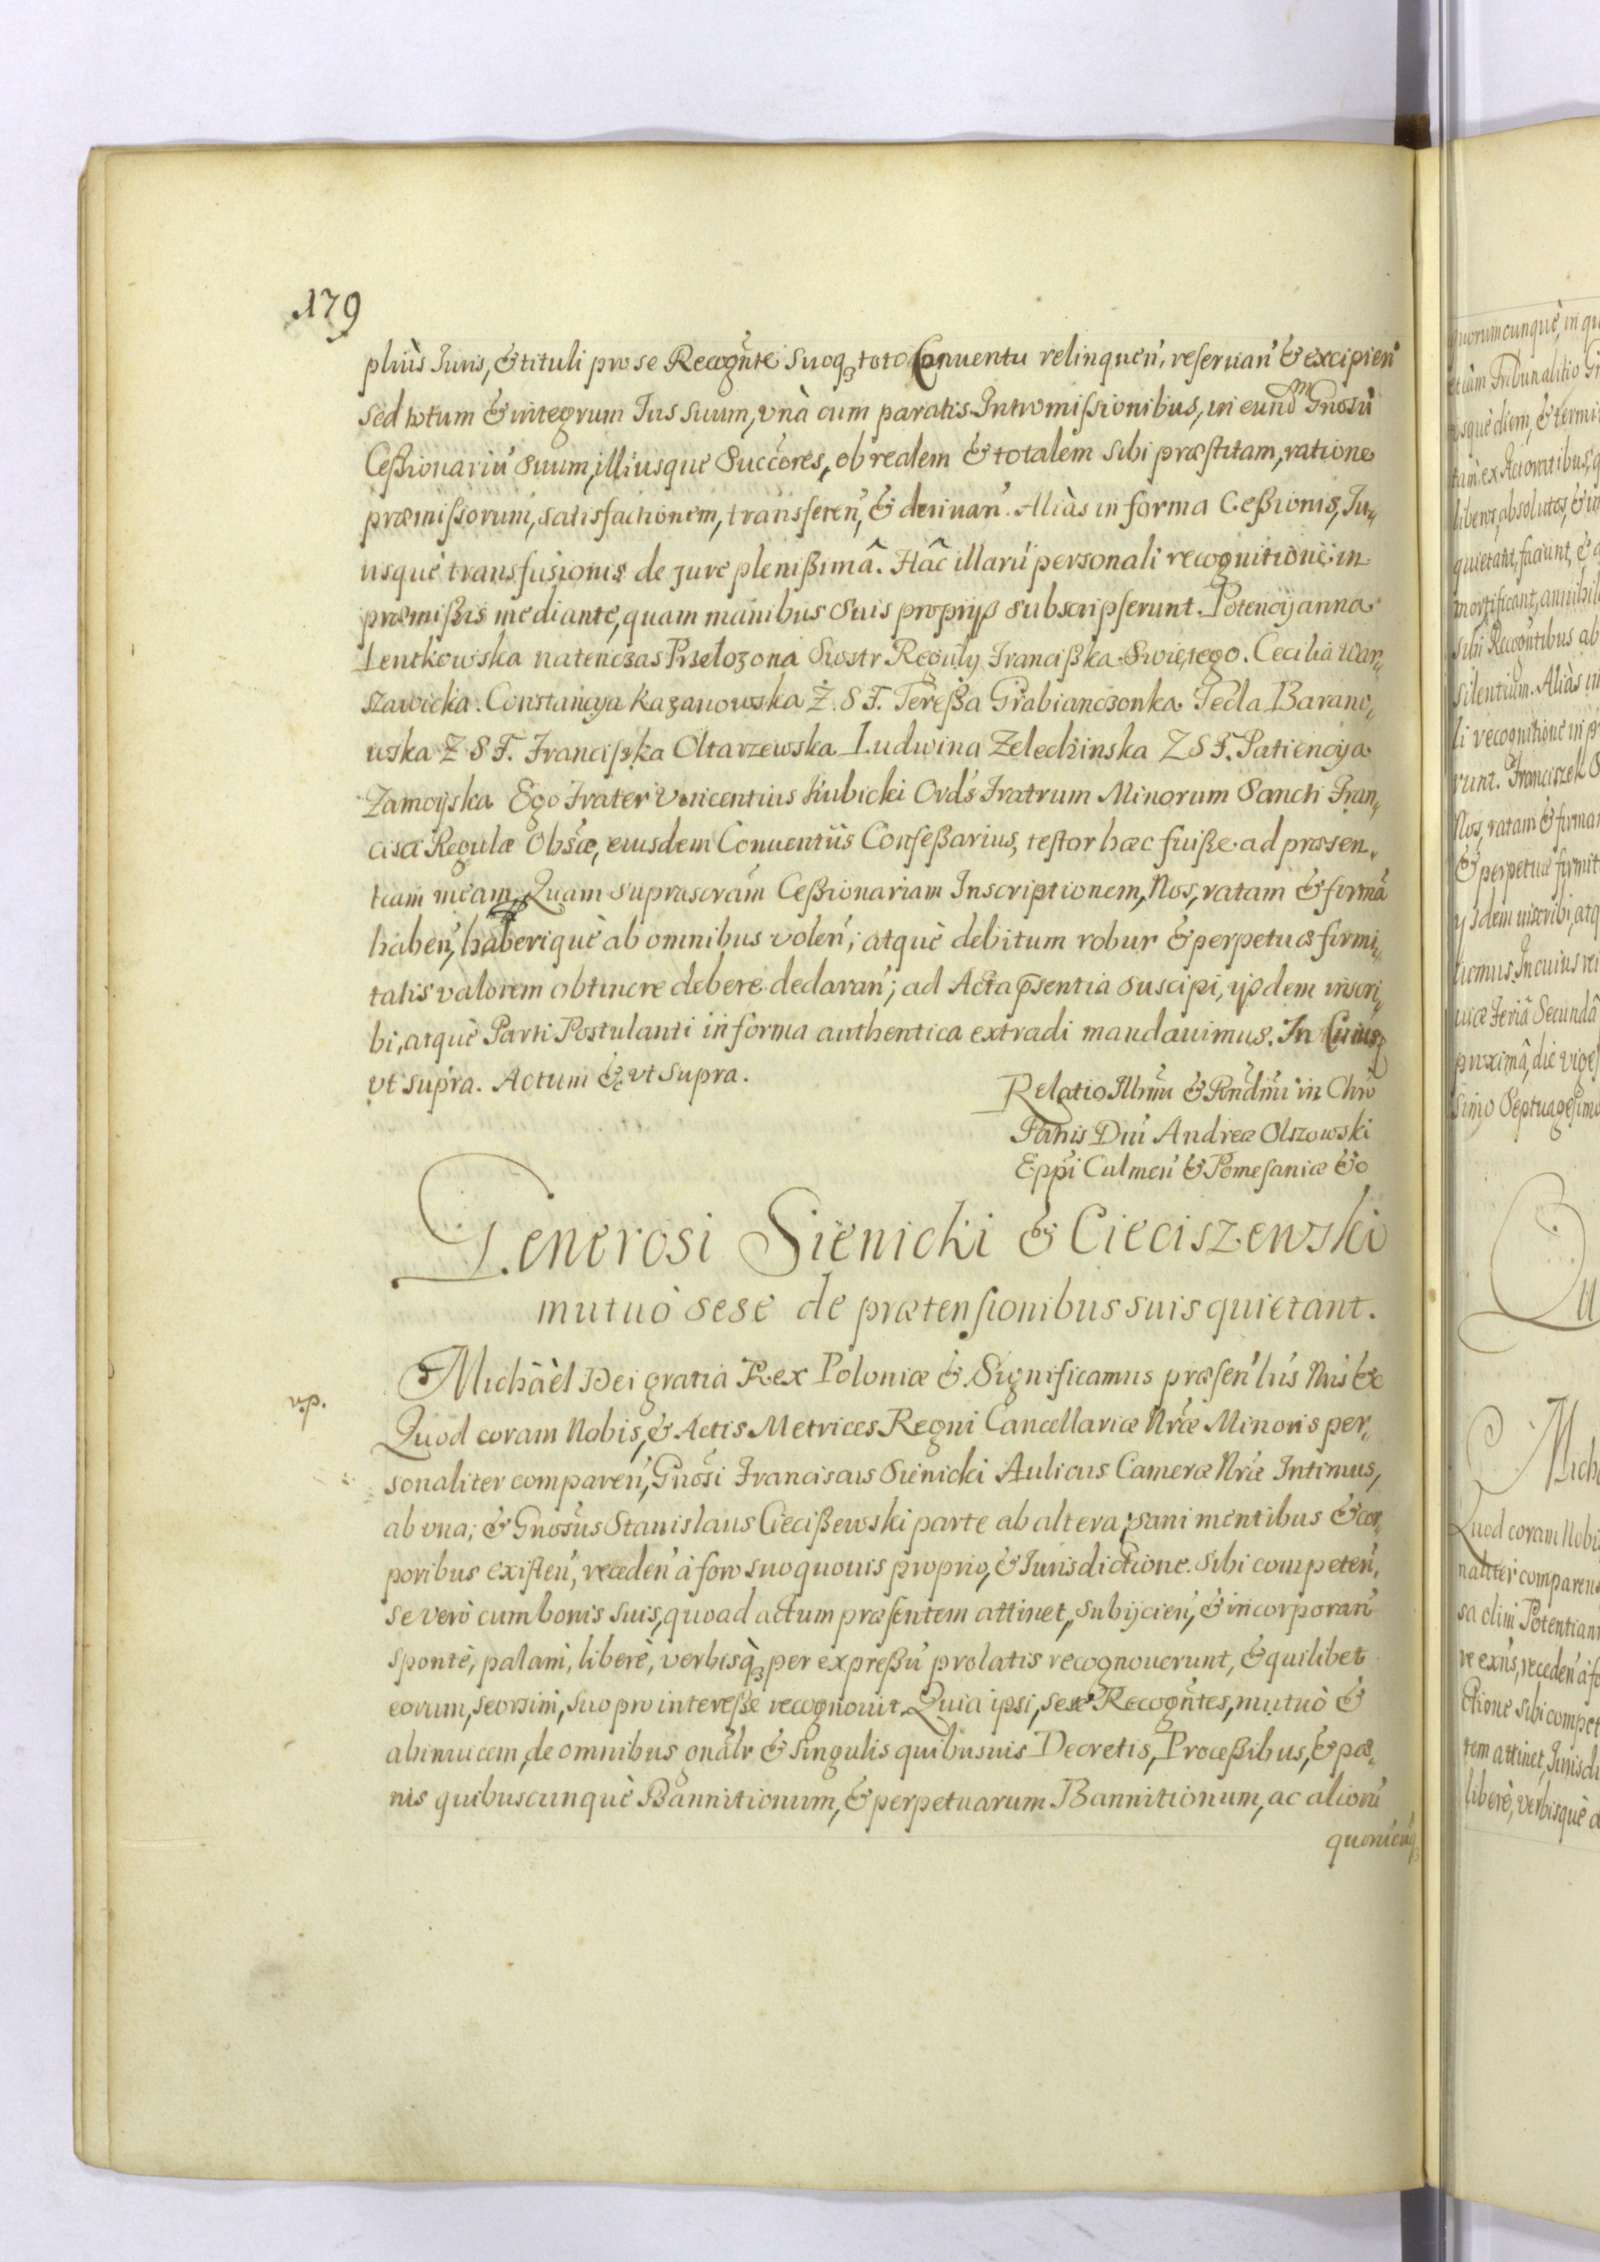 179
pliùs Iuris, & tituli pro se Recogn̄te suoq₃ toto Conuentu relinquen̄, reseruan̄ & excipien̄
sed totum & integrum Ius suum, vnà cum paratis Intromissionibus, in eund̄m Gnosū
Ceßionariū suum, illiusque Succōres, ob realem & totalem sibi præstitam, ratione
præmissorum, satisfactionem, transferen̄, & deriuan̄. Aliàs in forma Ceßionis, Iu„
risquè transfusionis de jure plenißimâ. Hâc illarū personali recognitione in
præmißis mediante, quam manibus suis proprijs subscripserunt. Potencyanna
Lentkowska natenczas Przelozona Siostr Reguly Franciszka Swiętego. Cecilia War„
szawicka. Constancya Kazanowska Z. S F. Tereßa Grabianczonka Tecla Barano„
wska Z S F. Franciszka Oltarzewska Ludwina Zelechinska Z S F. Patiencya
Zamoyska Ego Frater Vincentius Kubicki Ord̄s Fratrum Minorum Sancti Fran„
cisci Regulæ Obs̄æ, eiusdem Conuentûs Confeßarius, testor hæc fuiße ad præsen„
tiam meam. Quam suprascrām Ceßionariam Inscriptionem, Nos, ratam & firmā
haben̄, haberiquè ab omnibus volen̄; atquè debitum robur & perpetuæ firmi„
tatis valorem obtinere debere declaran̄; ad Acta p̄sentia suscipi, ijsdem inscri„
bi, atquè Parti Postulanti in forma authentica extradi mandauimus. In Cuius
vt supra. Actum & vt supra.
Relatio Illm̄i & Rnd̄mi in Chr̄o
Pātris Dn̄i Andreæ Olszowski
Epp̄i Culmen̄ & Pomesaniæ &c
Generosi Sienicki & Cieciszewski
mutuò sese de prætensionibus suis quietant.
v.p.
Michaèl Dei gratia Rex Poloniæ &. Significamus præsen̄ lrīs Nrīs &c
Quod coram Nobis, & Actis Metrices Regni Cancellariæ Nrǣ Minoris per„
sonaliter comparen̄, Gnōsi Franciscus Sienicki Aulicus Cameræ Nrǣ Intimus,
ab vna; & Gnosūs Stanislaus Ciecißewski parte ab altera; sani mentibus & cor„
poribus existen̄, receden̄ à foro suo quouis proprio, & Iurisdictione sibi competen̄,
se verò cum bonis suis, quoad actum præsentem attinet, subijcien̄, & incorporan̄
spontè, palam, liberè, verbisq̀₃ per expreßū prolatis recognouerunt, & quilibet
eorum, seorsim, suo pro intereße recognouit. Quia ipsi, sese Recogn̄tes, mutuò &
abinuicem, de omnibus gnālr & singulis quibusuis Decretis, Proceßibus, & pœ„
nis quibuscunquè Bannitionum, & perpetuarum Bannitionum, ac aliorū
quorūcūq₃